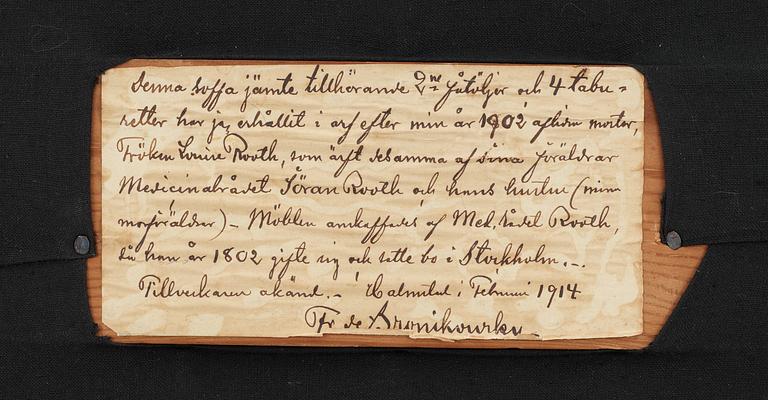 Denna soffa jämte tillhörande 2ne fåtöljer och 4 tabu=
retter har jag erhållit i arf efter min år 1902 aflidna moster,
Fröken Louise Rooth, som ärft desamma af sina föräldrar
Medicinalrådet Göran Rooth och hans hustru (mina
morföräldrar) – Möblen anskaffades af Med. rådet Rooth,
då han år 1802 gifte sig och satte bo i Stockholm. –.
Tillverkaren okänd. – Halmstad i Februari 1914
de